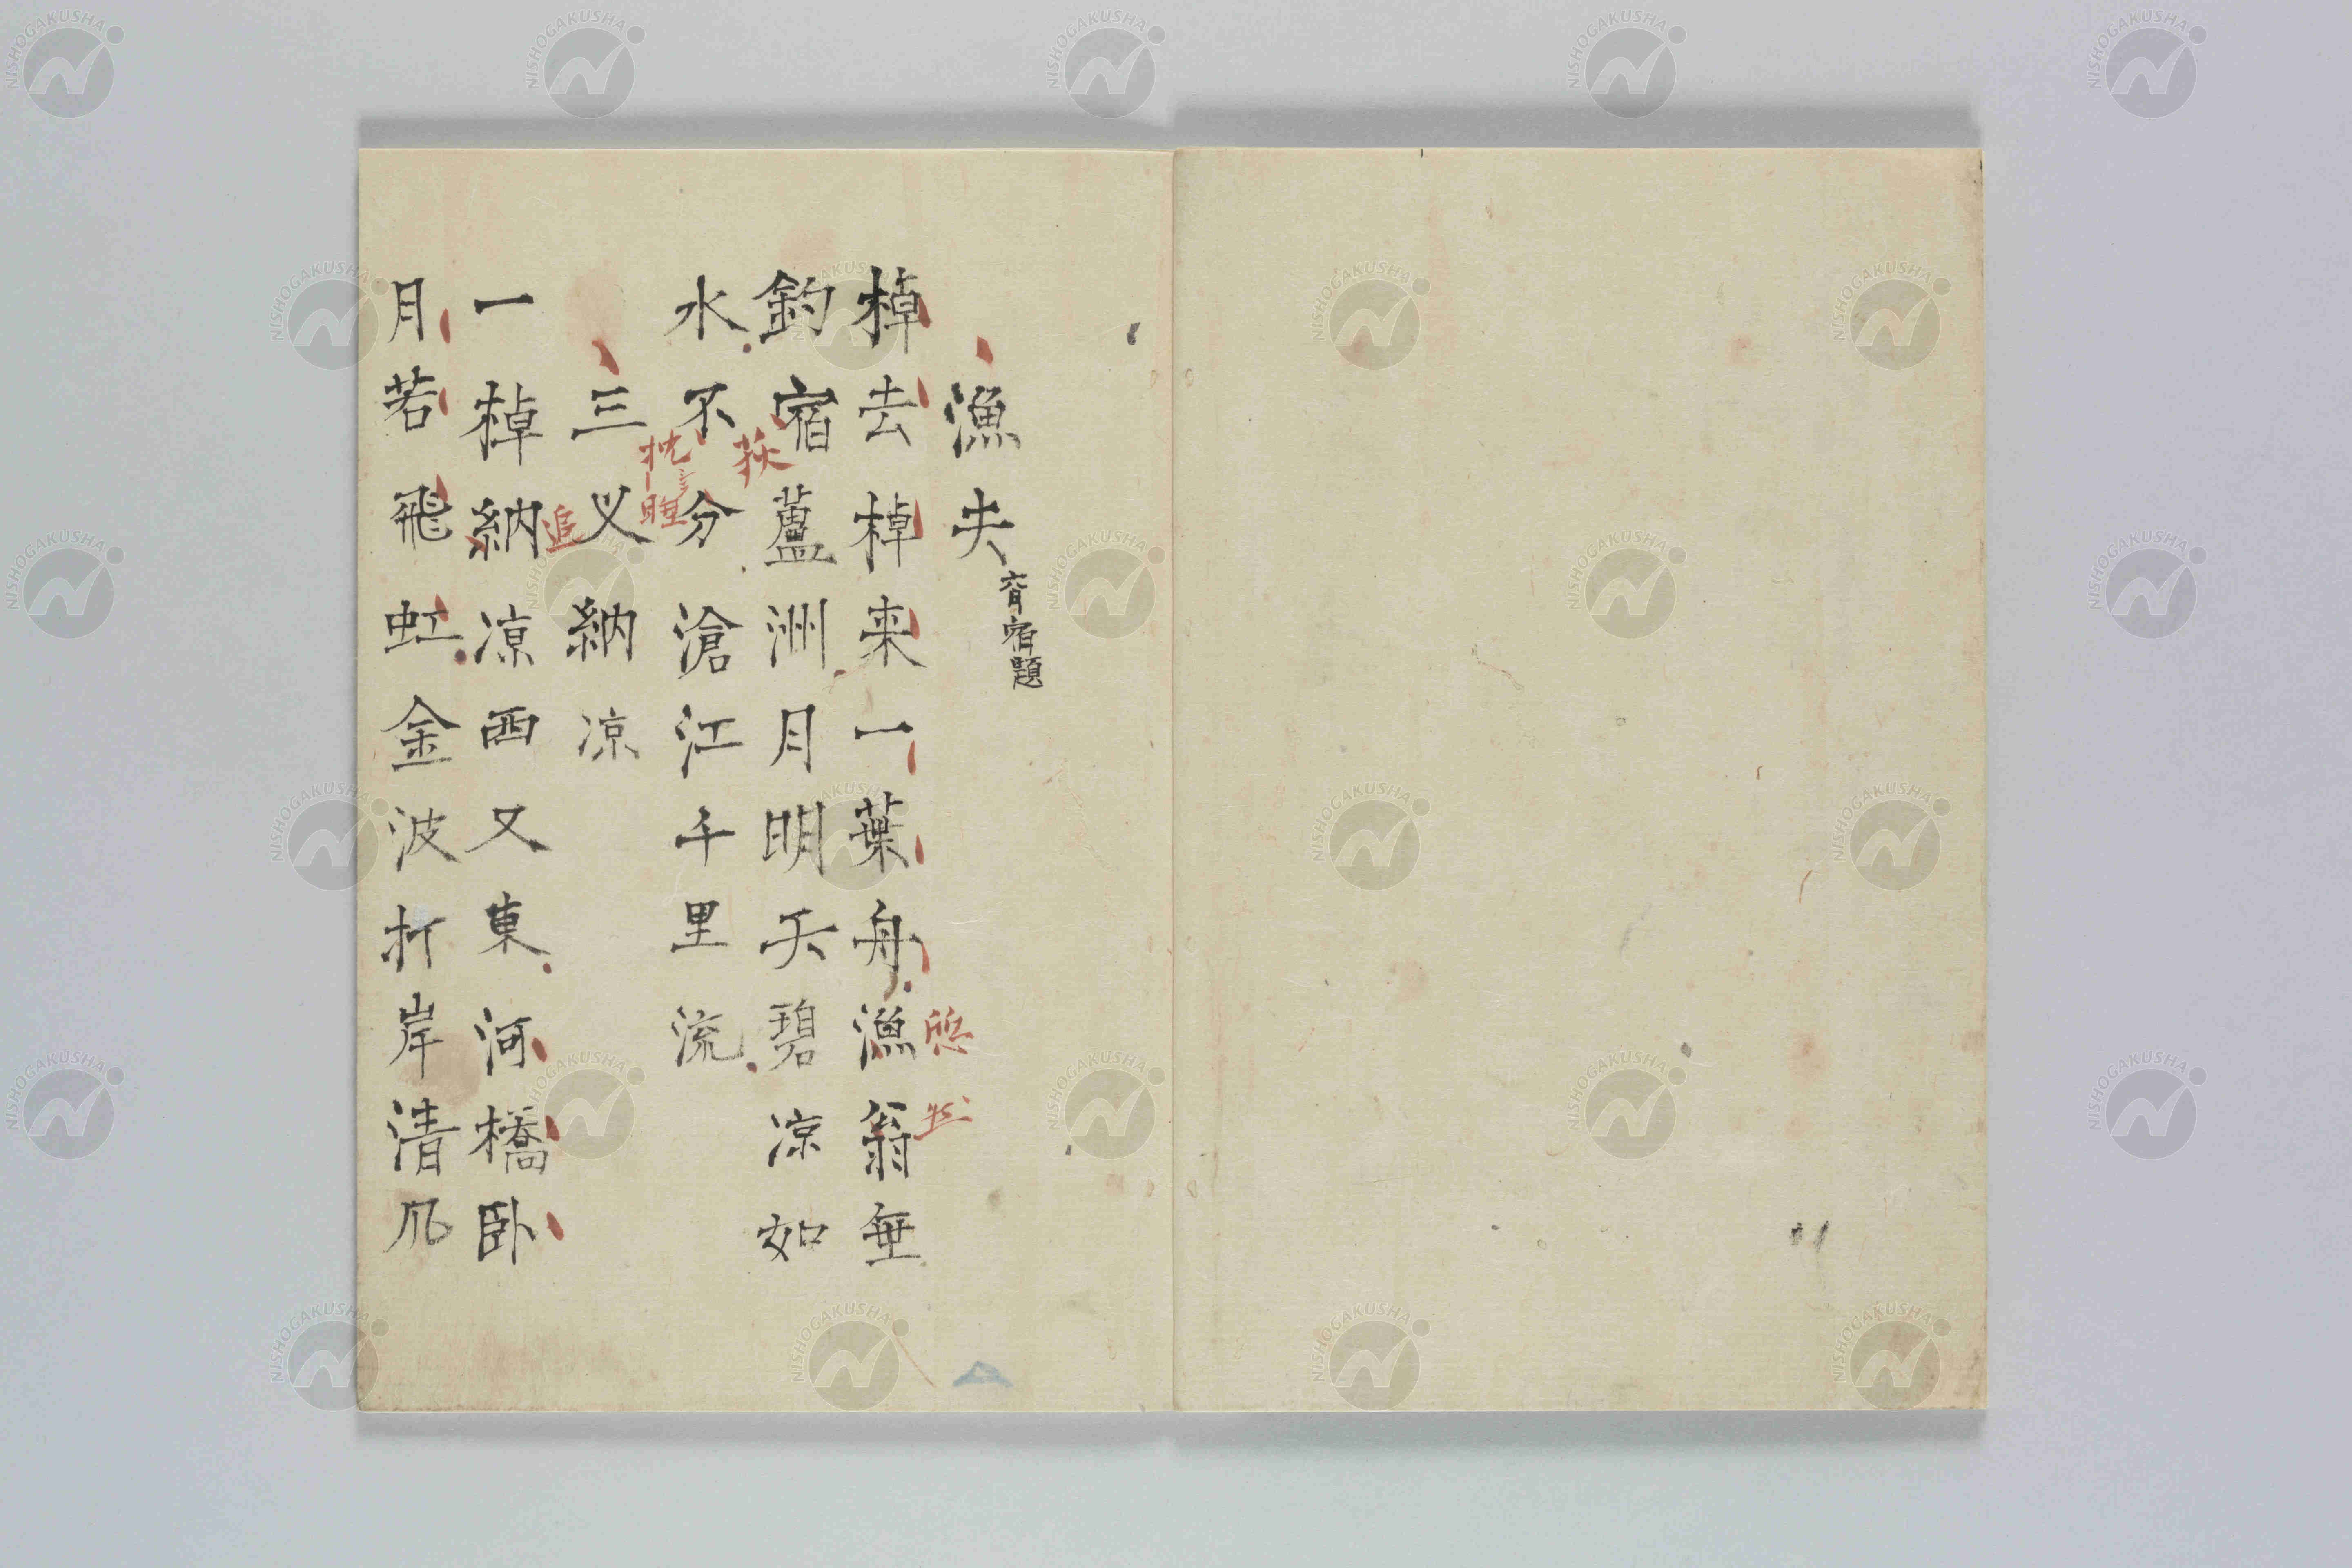 漁夫 齊宿題
棹去棹来一葉舟漁翁垂
釣宿蘆洲月明天碧凉如
水不分滄江千里流
三叉納凉
一棹納凉西又東河橋卧
月若飛虹金波拆岸清風
荻
枕
睡
追
NISHOGAKUSHA